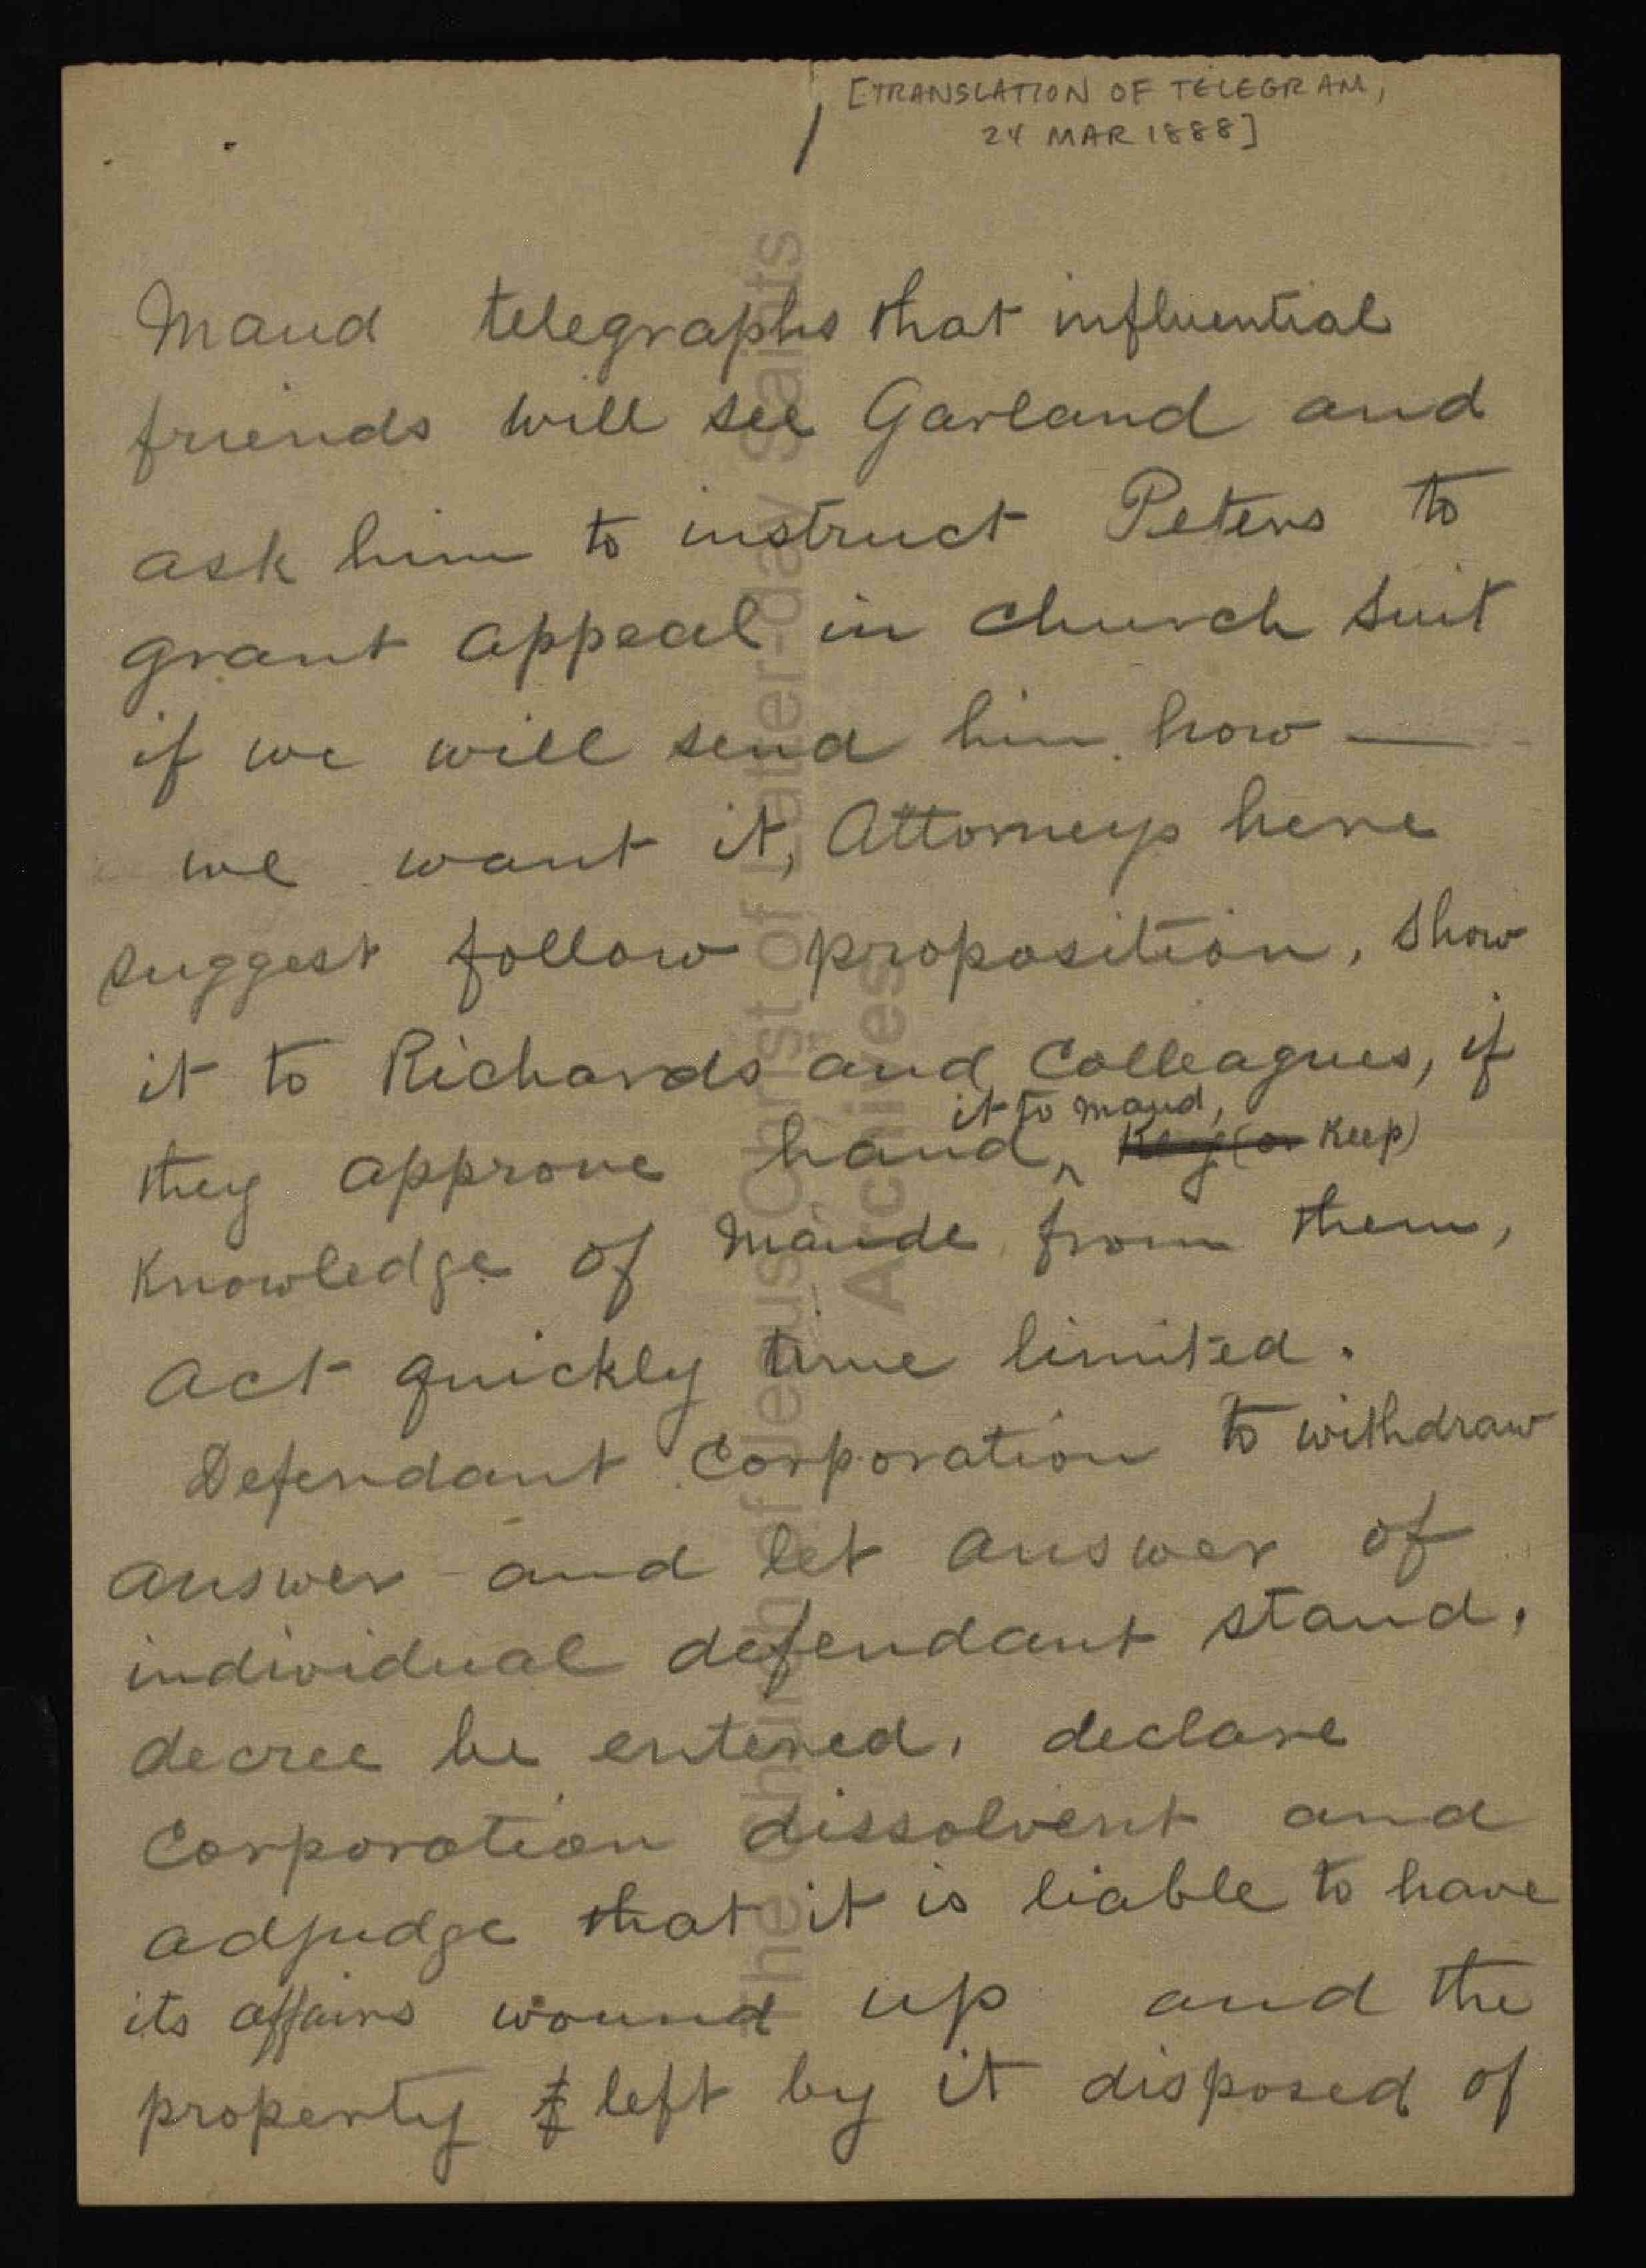 [TRANSLATION OF TELEGRAM,
24 MAR 1888]
/
Maud telegraphs that influential
friends will see Garland and
ask him to instruct Peters to
grant appeal in church suit
if we will send him how —
we want it, Attorneys here
suggest follow proposition, show
it to Richards and Colleagues, if
it to Maud,
they approve hand ^ (or Keep)
Knowledge of Maude from them,
Act quickly time limited.
Defendant Corporation to withdraw
answer and let answer of
individual defendant stand,
decree be entered, declare
Corporation dissolvent and
adjudge that it is liable to have
its affairs wound up and the
property left by it disposed of
The Church of Jesus Christ of Latter-day Saints
Archives